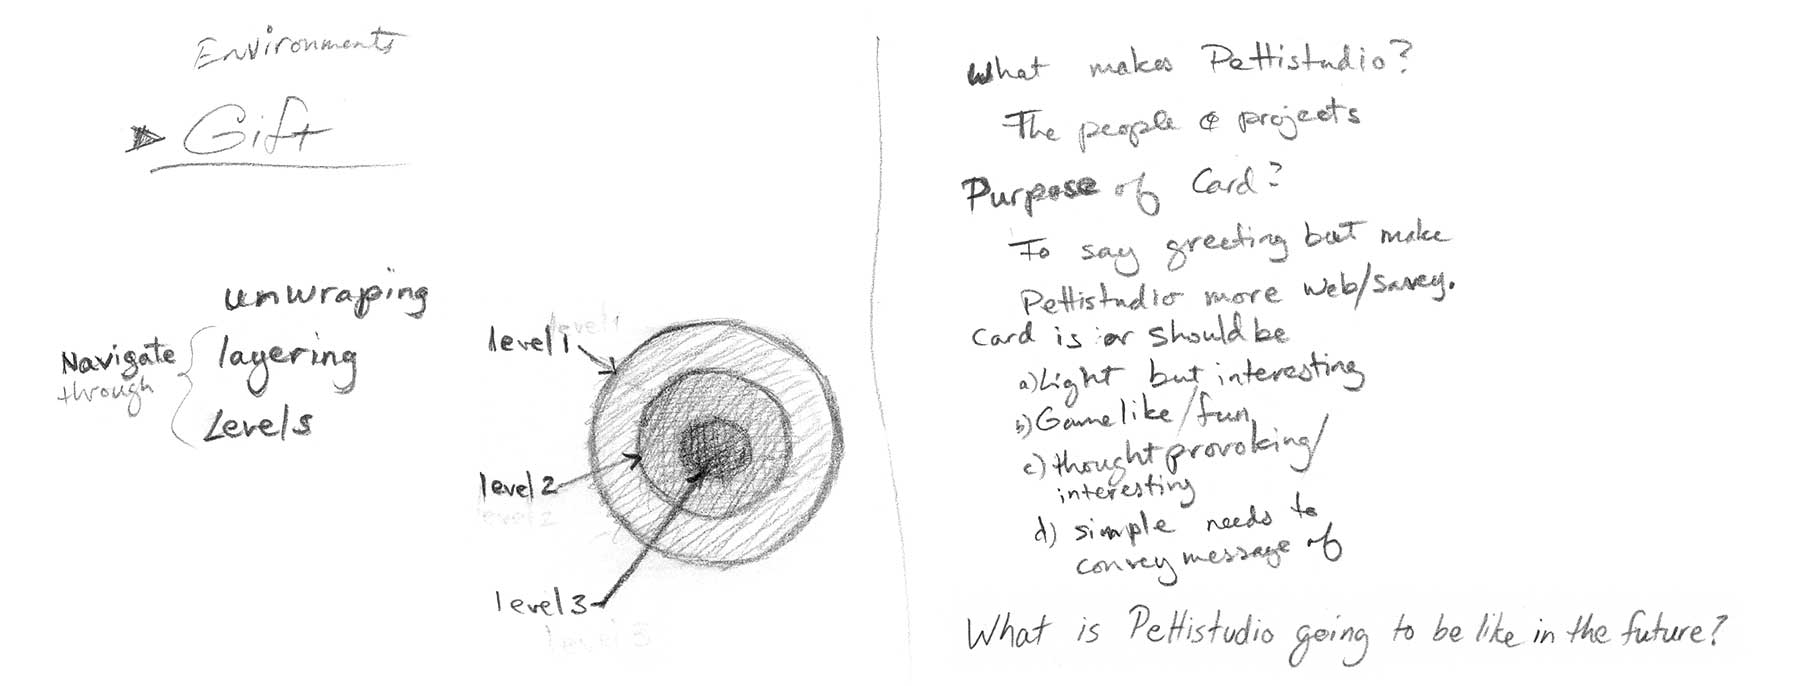 Environments
Gift
unwraping
Navigate
through
layering
Levels
level 1
level 2
level 3
What makes Pettistudio?
The people & projects
Purpose of Card?
To say greeting but make
Pettistudio more web/savey.
Card is or should be
a) Light but interesting
b) Game like/fun
c) thought provoking/
interesting
d) simple needs to
convey message of
What is Pettistudio going to be like in the future?